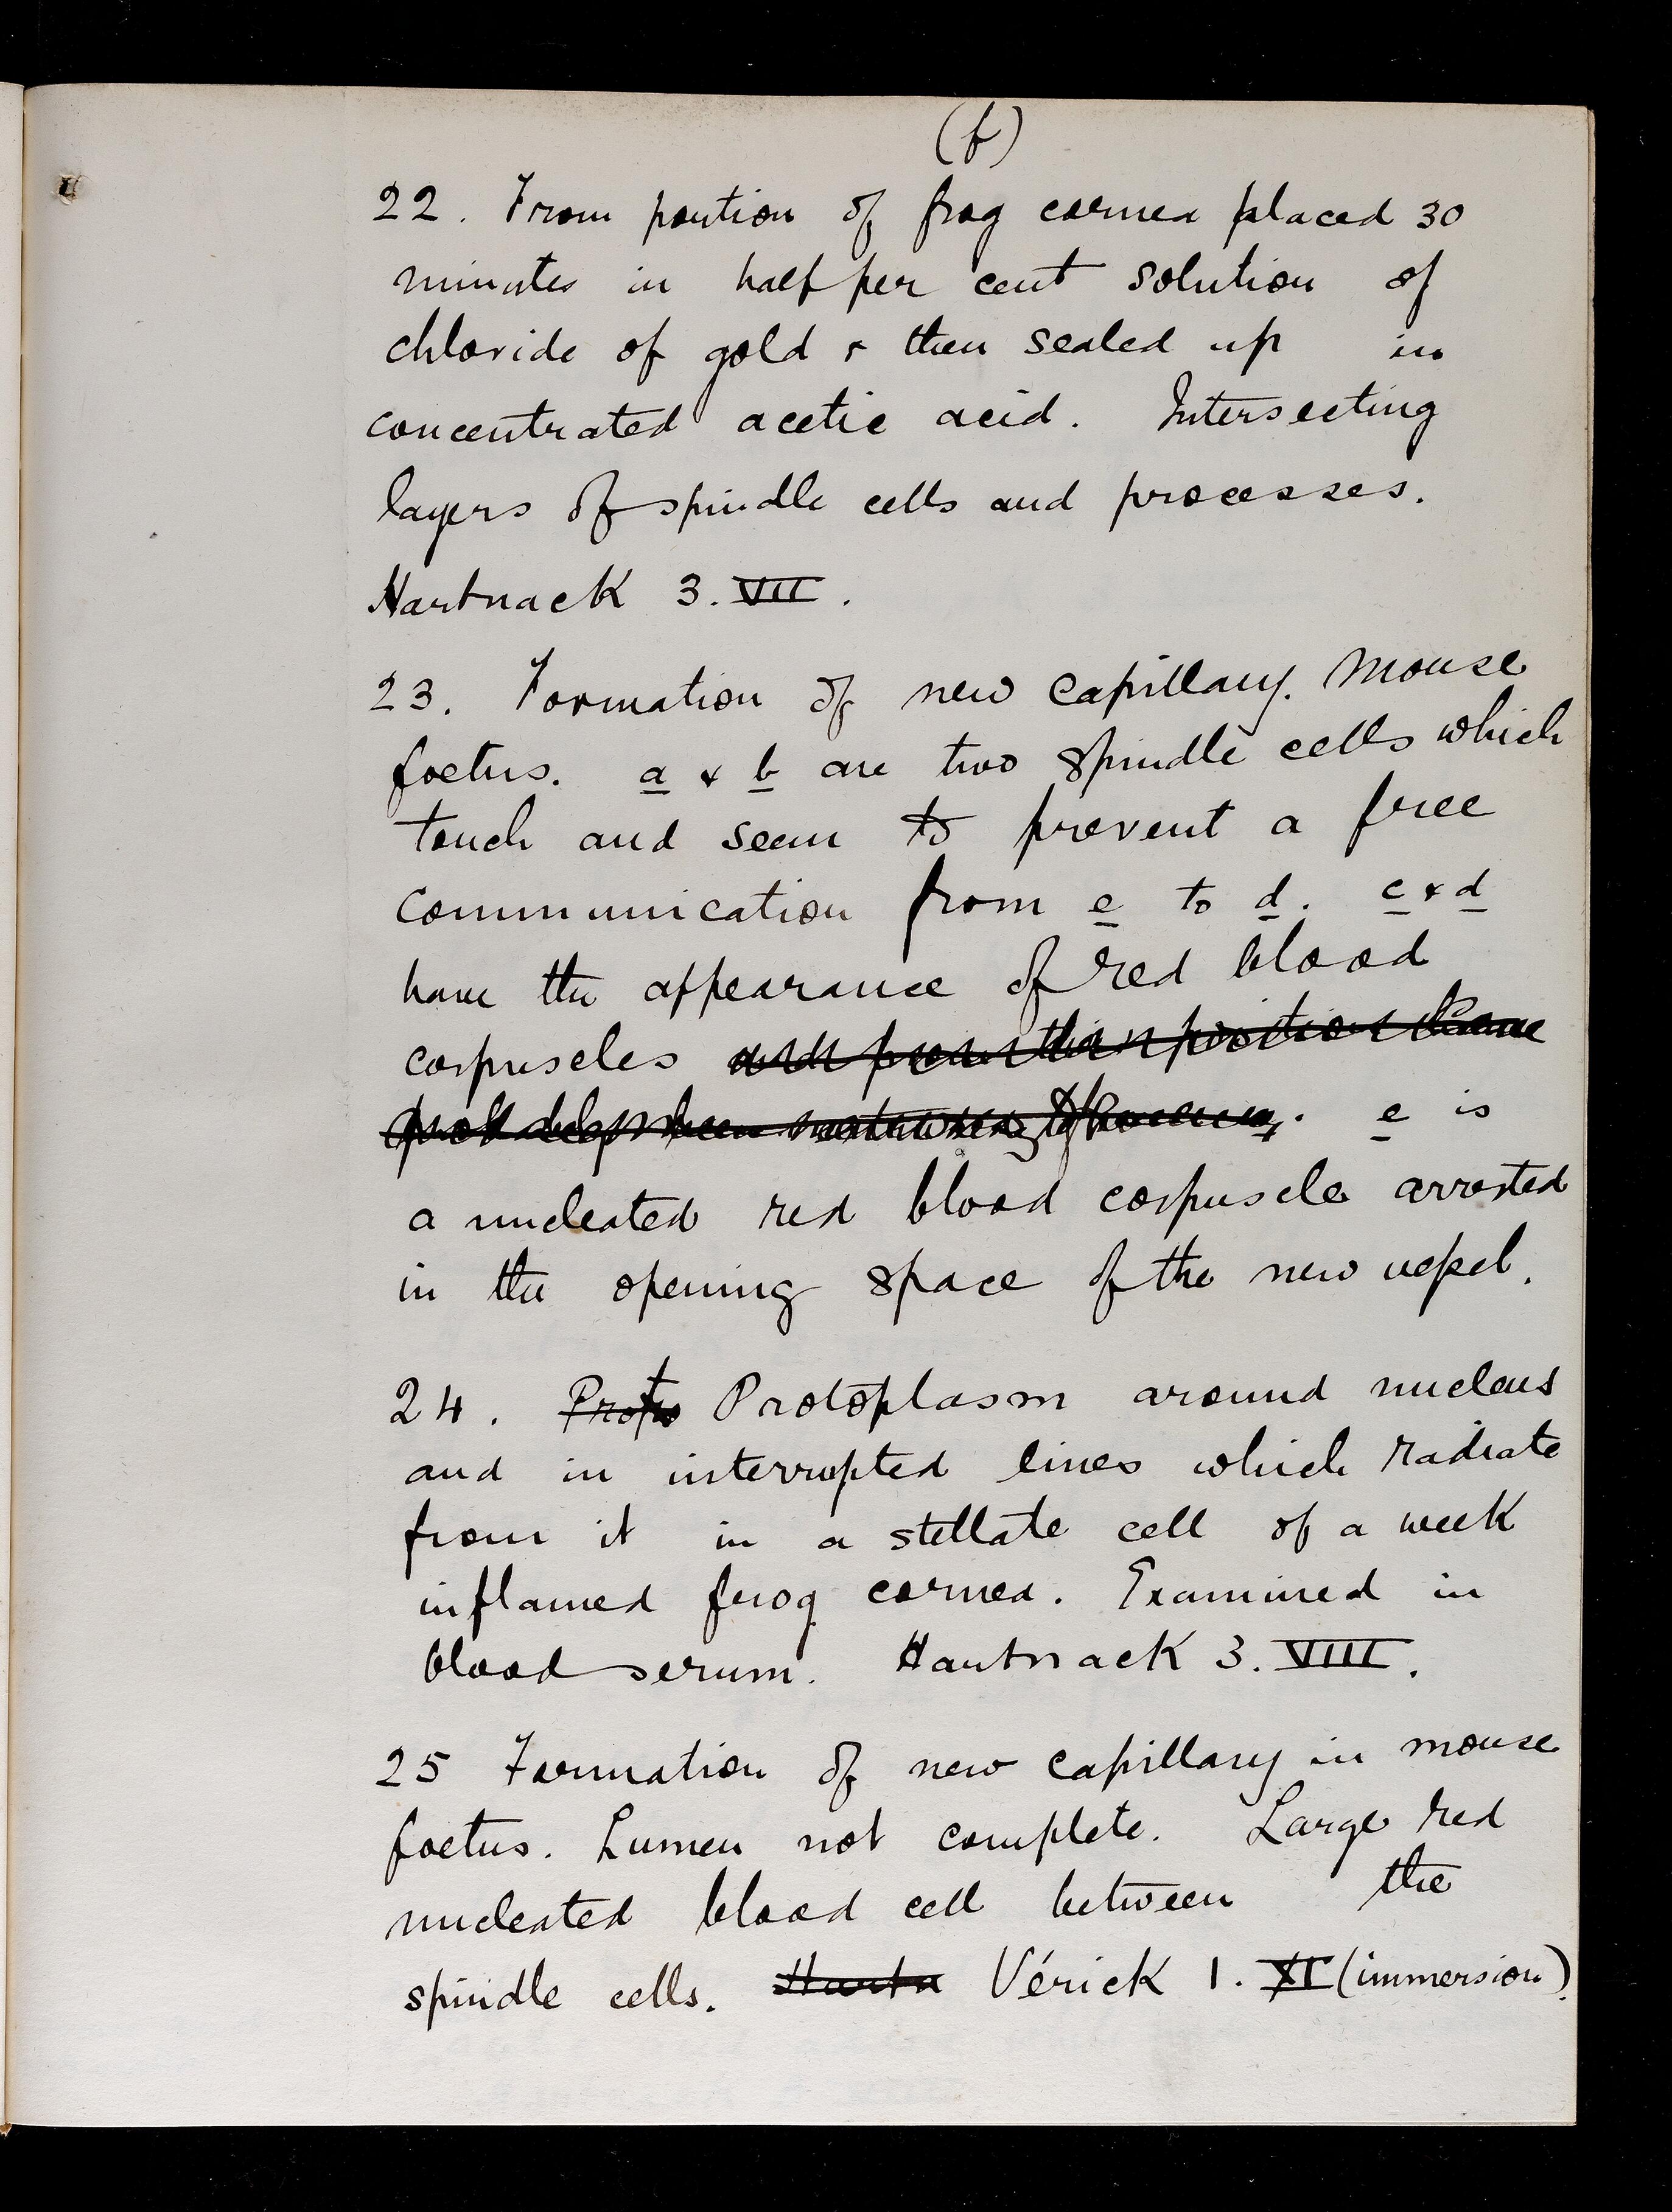 (f)
22. From portion of frog cornea placed 30
minutes in half per cent solution of
chloride of gold & then sealed up in
concentrated acetic acid. Intersecting
layers of spindle cells and processes.
Hartnack 3. VII.
23. Formation of new capillary. Mouse
foetus. a & b are two spindle cells which
touch and seem to prevent a free
communication from e to d. c & d
have the appearance of red blood
corpuscles and from their position have
probably been . e is
a nucleated red blood corpuscle arrested
in the opening space of the new vessel.
24. Proto Protoplasm around nucleus
and in interrupted lines which radiate
from it in a stellate cell of a week
inflamed frog cornea. Examined in
blood serum. Hartnack 3. VIII.
25 Formation of new capillary in mouse
foetus. Lumen not complete. Large red
nucleated blood cell between the
spindle cells. Hartn Vérick 1. XI (immersion).